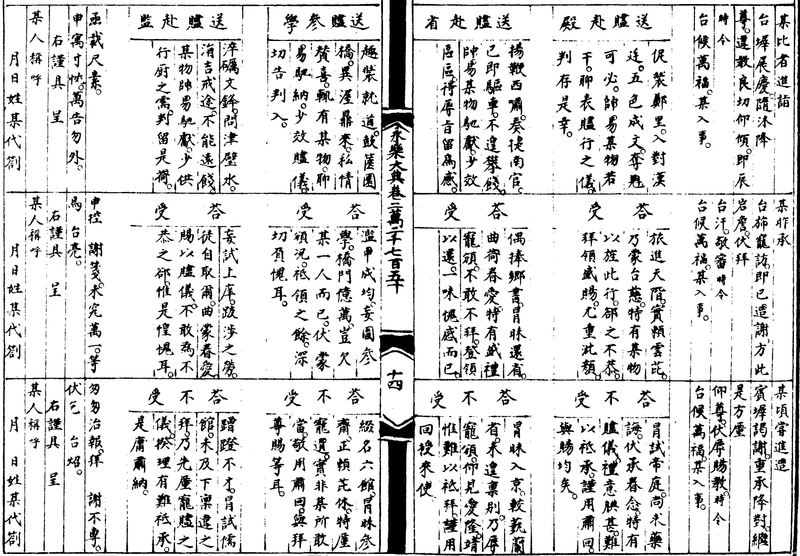 某比者進詣
台墀展慶隨沐降
尊還教良切仰傾即辰
時令
台候萬福某入事
送贐赴殿
促裝鄭里入對漢
廷五色成文奪魁
可必帥易某物若
干聊表贐行之儀
判存是幸
送贐赴省
揚鞭西嚮奏徒南宮
已即驅車不遑舉餞
帥易某物馳獻少效
區區得辱旨留為感
某昨承
台旆寵訪即已造謝方此
台汗敬審時令
台候萬福某入事
答受
旅進天階實賴雲芘
乃蒙台慈特有某物
以旌此行卻之不恭
拜領盛賜尤重泚顏
答受
偶捧鄉書冒昧還省
曲荷眷愛特有盛禮
寵頒不敢不拜登領
以還一味愧感而已
某頃嘗進造
賓墀謁謝重承降對繼
是方厪
仰尊伏辱賜教時令
台候萬福某入事
答不受
冒試帝庭尚未藥
誨伏承眷念特有
贐儀禮意腆甚難
以祗承謹用肅回
與賜均矣
答不受
冒昧入京較藝蘭
省未遑稟別乃辱
寵頒仰見愛隆靖
惟難以祗拜謹用
回授來使
永樂大典卷二萬二千七百五十
十四
送贐參學
趣裝就道鼓篋圜
橋異渥鼎來私情
贊喜輒有某物聊
易馳納少效贐儀
切告判入
送贐赴監
淬礪文鋒問津璧水
涓吉戒途不能遠餞
某物帥易馳獻少供
行廚之需判留是荷
亟裁尺素
申寓寸忱萬告勿外
右謹具呈
某人稱呼
月日姓某代劄
答受
濫中成均妄圖參
學橋門億萬豈欠
某一人而已伏蒙
頒況祗領之餘深
切負愧耳
答受
妄試上庠跋涉之勞
徒自取爾曲蒙眷愛
賜以贐儀不敢為不
恭之卻惟是惶愧耳
申控謝箋未究萬一等
馬台亮
右謹具呈
某人稱呼
月日姓某代劄
答不受
綴名六館冒昧參
齋正賴芘休特厪
寵遺實非某所敢
當敬用肅回與拜
尊賜等耳
答不受
蹭蹬不才冒試儒
館未及下稟違之
拜乃先厪寵贐之
儀揆理有難祗承
是庸肅納
匆匆治報殫謝不專
伏乞台炤
右謹具呈
某人稱呼
月日姓某代劄